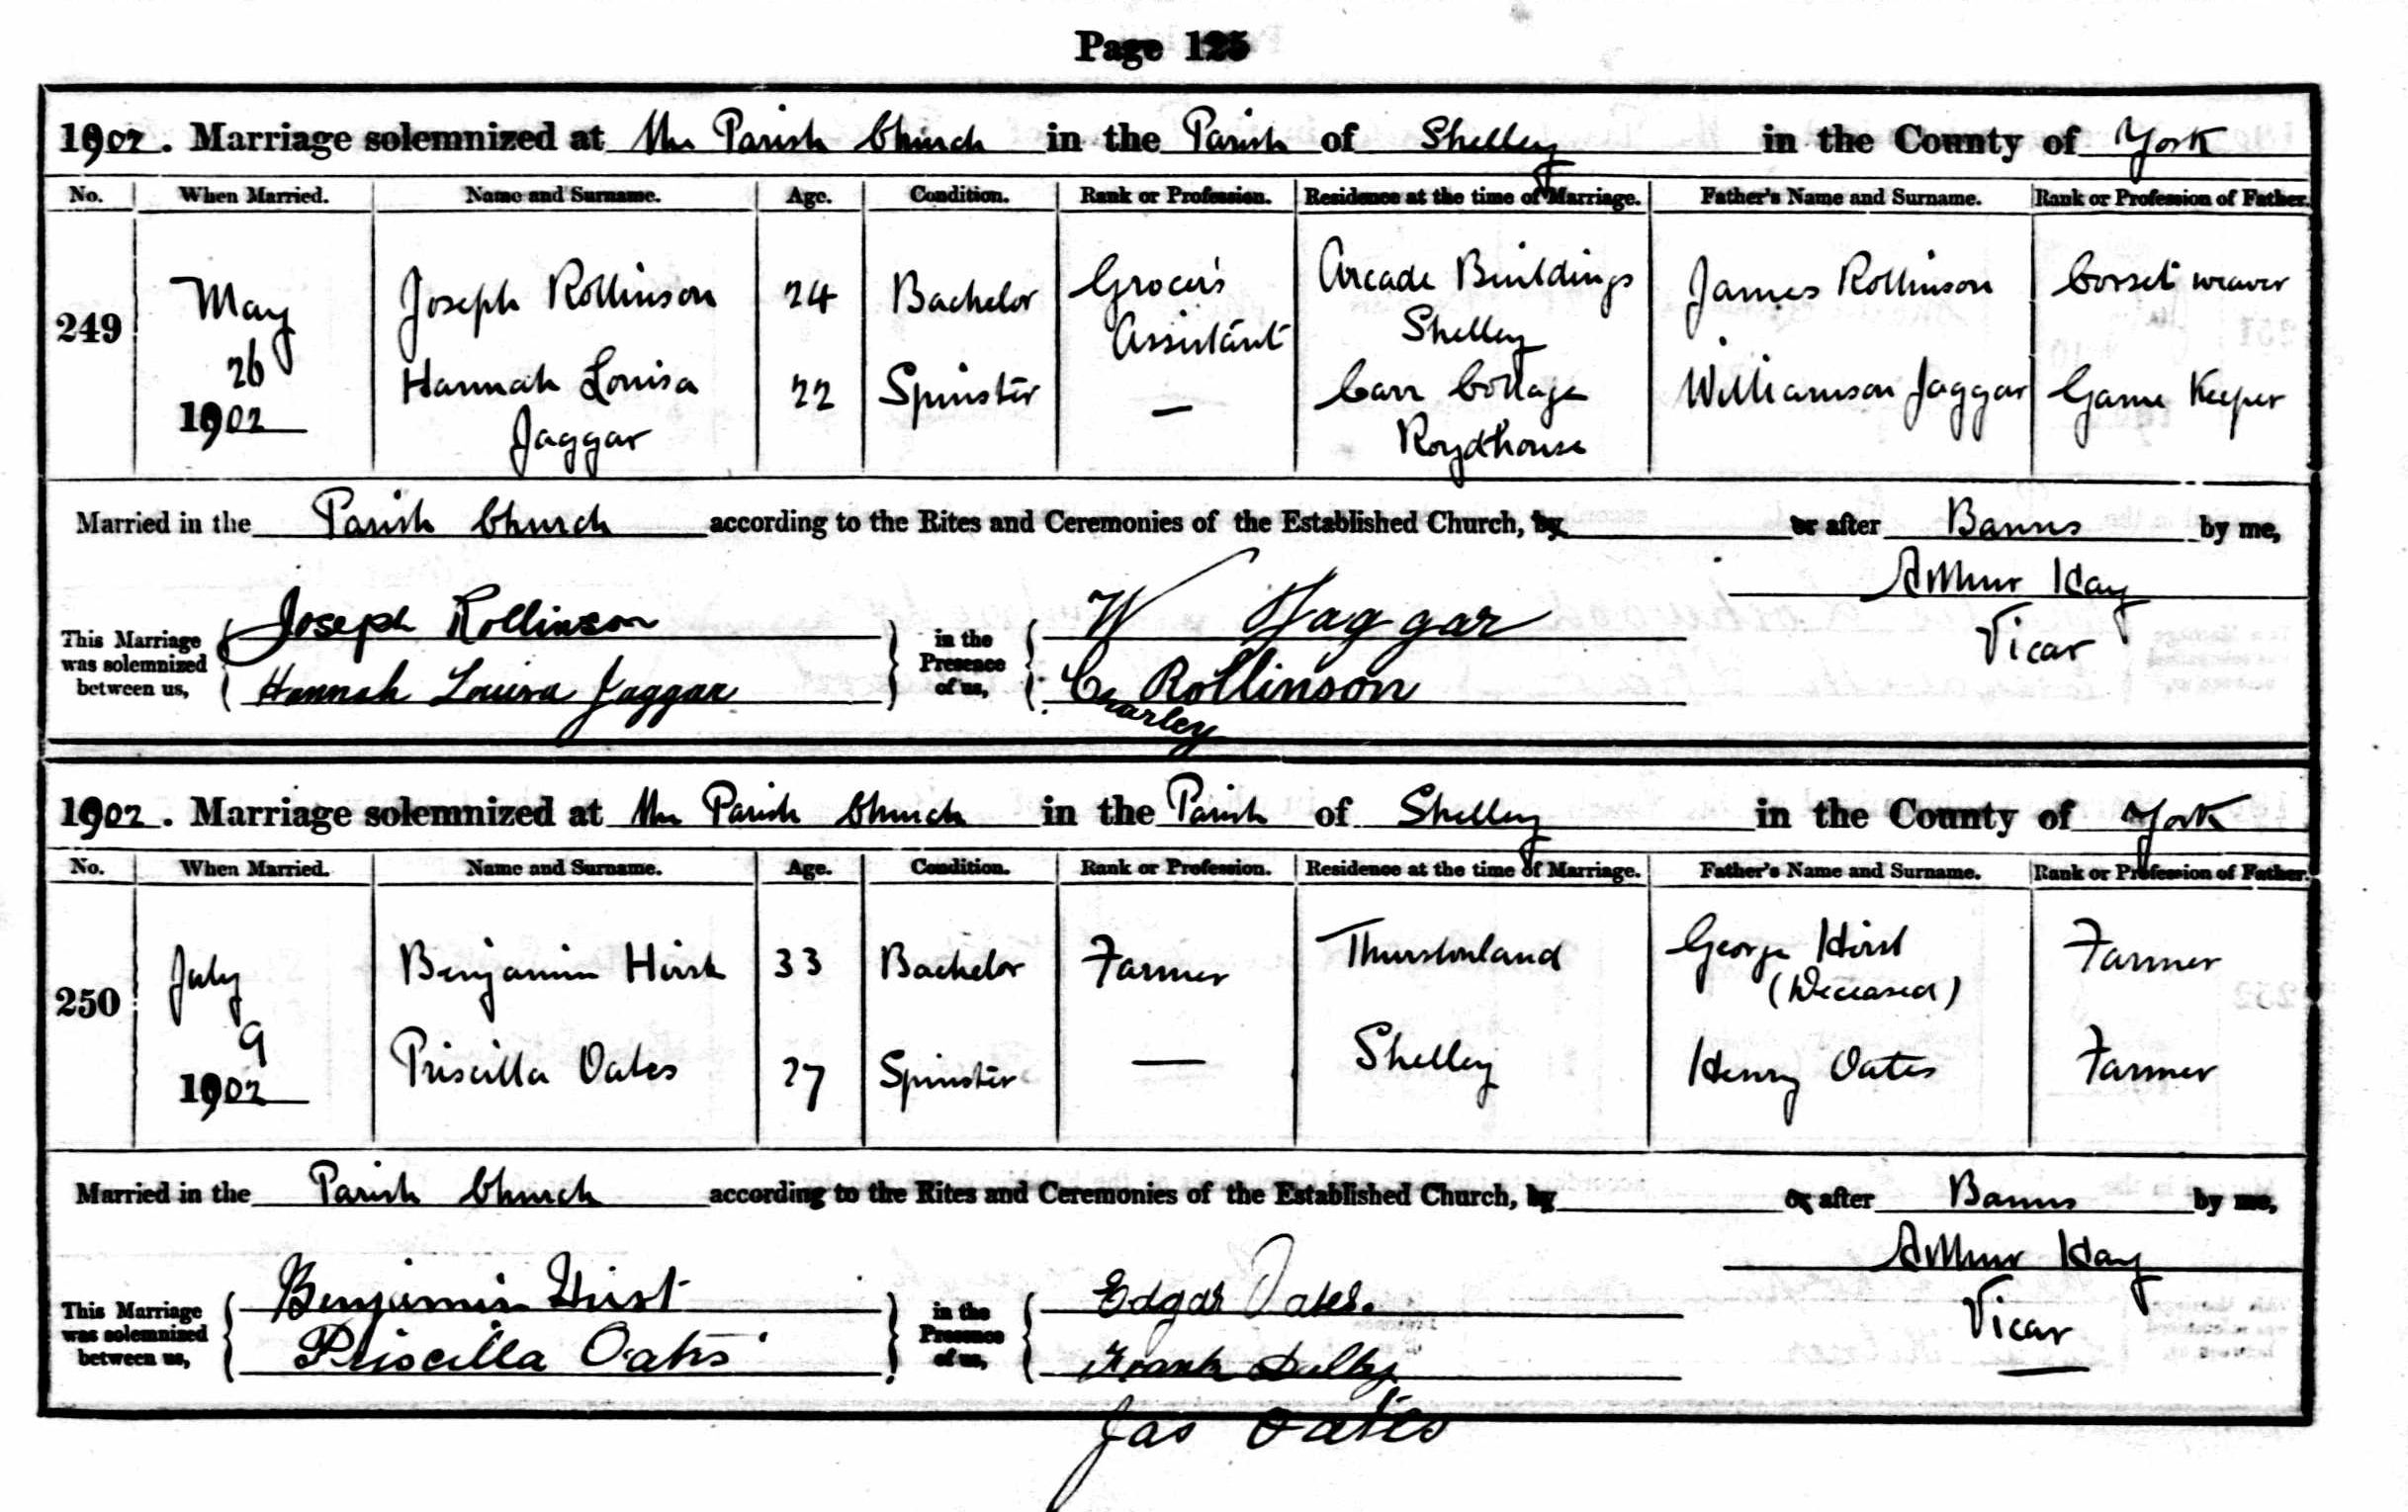 Page 125
1902. Marriage solemnized at the Parish Church in the Parish of Shelley in the County of York
No. When Married. Name and Surname. Age. Condition. Rank or Profession. Residence at the time of Marriage. Father's Name and Surname. Rank or Profession of Father.
249 May 26 1902 Joseph Rollinson 24 Bachelor Grocer's Assistant Arcade Buildings Shelley James Rollinson Corset weaver
Hannah Louisa Jaggar 22 Spinster — Carr Cottage Roydhouse Williamson Jaggar Game Keeper
Married in the Parish Church according to the Rites and Ceremonies of the Established Church, by or after Banns by me,
Arthur Hay
Vicar
This Marriage was solemnized between us, Joseph Rollinson Hannah Louisa Jaggar in the Presence of us, W Jaggar Charley Rollinson
1902. Marriage solemnized at the Parish Church in the Parish of Shelley in the County of York
No. When Married. Name and Surname. Age. Condition. Rank or Profession. Residence at the time of Marriage. Father's Name and Surname. Rank or Profession of Father.
250 July 9 1902 Benjamin Hirst 33 Bachelor Farmer Thurstonland George Hirst (Deceased) Farmer
Priscilla Oates 27 Spinster — Shelley Henry Oates Farmer
Married in the Parish Church according to the Rites and Ceremonies of the Established Church, by or after Banns by me,
Arthur Hay
Vicar
This Marriage was solemnized between us, Benjamin Hirst Priscilla Oates in the Presence of us, Edgar Oates. Frank
Jas Oates